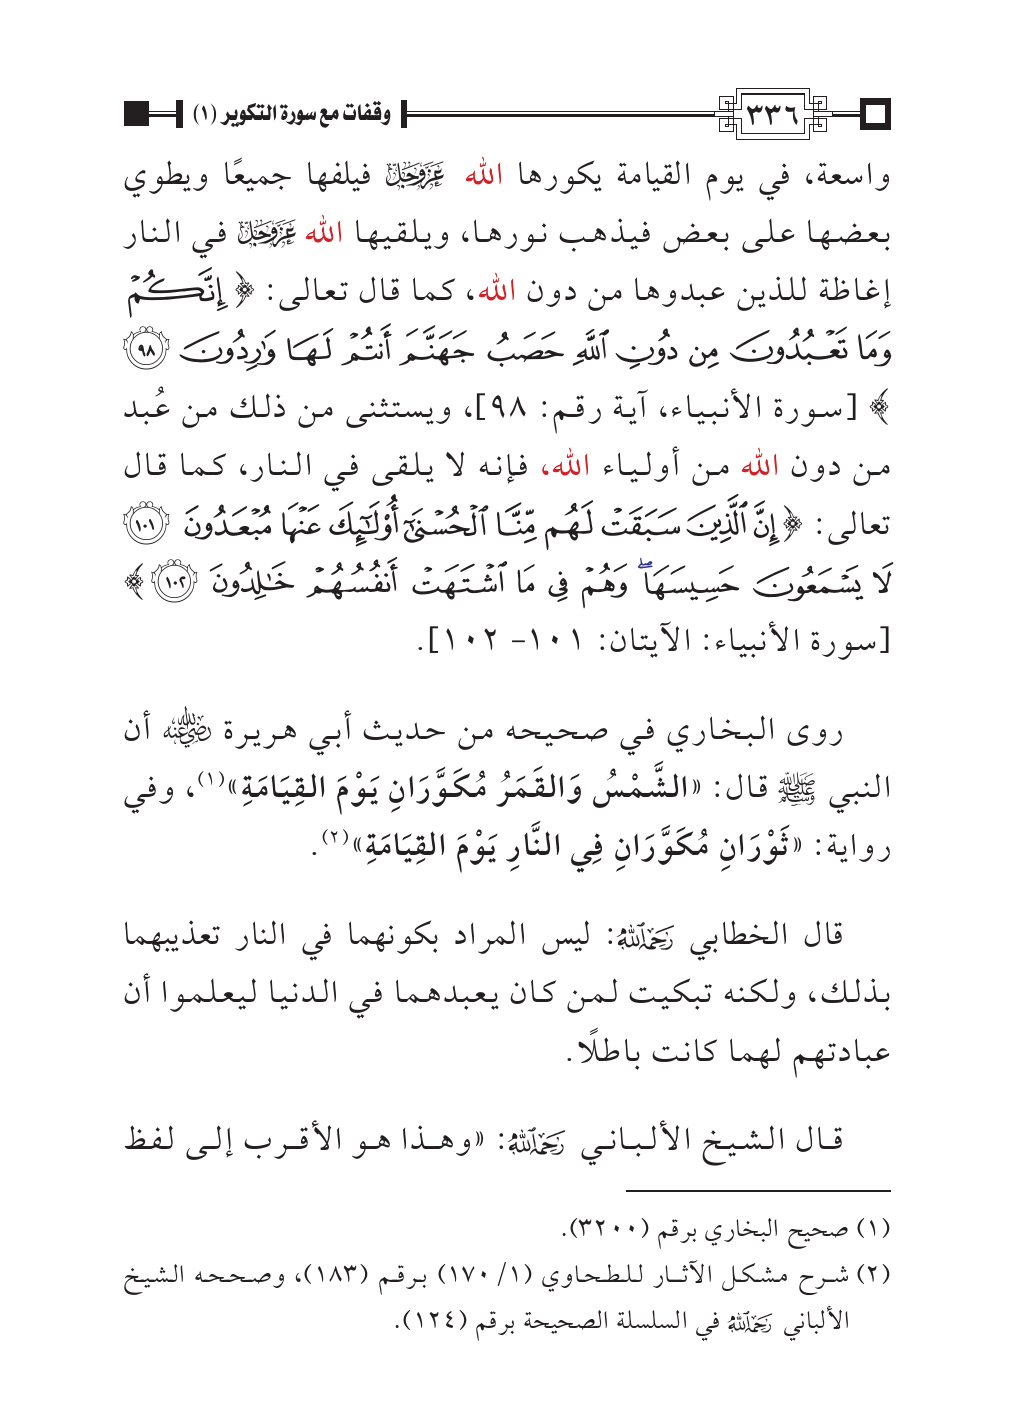 ٣٣٦
وقفات مع سورة التكوير (١)
واسعة، في يوم القيامة يكورها الله عَزَّوَجَلَّ فيلفها جميعًا ويطوي
بعضها على بعض فيذهب نورها، ويلقيها الله عَزَّوَجَلَّ في النار
إغاظة للذين عبدوها من دون الله، كما قال تعالى: ﴿ إِنَّكُمْ
وَمَا تَعْبُدُونَ مِن دُونِ ٱللَّهِ حَصَبُ جَهَنَّمَ أَنتُمْ لَهَا وَٰرِدُونَ ٩٨
﴾ [سورة الأنبياء، آية رقم: ٩٨]، ويستثنى من ذلك من عُبد
من دون الله من أولياء الله، فإنه لا يلقى في النار، كما قال
تعالى: ﴿ إِنَّ ٱلَّذِينَ سَبَقَتْ لَهُم مِّنَّا ٱلْحُسْنَىٰٓ أُوْلَٰٓئِكَ عَنْهَا مُبْعَدُونَ ١٠١
لَا يَسْمَعُونَ حَسِيسَهَا ۖ وَهُمْ فِي مَا ٱشْتَهَتْ أَنفُسُهُمْ خَٰلِدُونَ ١٠٢ ﴾
[سورة الأنبياء: الآيتان: ١٠١- ١٠٢].
روى البخاري في صحيحه من حديث أبي هريرة رَضِيَ اللَّهُ عَنْهُ أن
النبي ﷺ قال: «الشَّمْسُ وَالقَمَرُ مُكَوَّرَانِ يَوْمَ القِيَامَةِ»(١)، وفي
رواية: «ثَوْرَانِ مُكَوَّرَانِ فِي النَّارِ يَوْمَ القِيَامَةِ»(٢).
قال الخطابي رَحِمَهُ اللَّهُ: ليس المراد بكونهما في النار تعذيبهما
بذلك، ولكنه تبكيت لمن كان يعبدهما في الدنيا ليعلموا أن
عبادتهم لهما كانت باطلًا.
قال الشيخ الألباني رَحِمَهُ اللَّهُ: «وهذا هو الأقرب إلى لفظ
(١) صحيح البخاري برقم (٣٢٠٠).
(٢) شرح مشكل الآثار للطحاوي (١/ ١٧٠) برقم (١٨٣)، وصححه الشيخ
الألباني رَحِمَهُ اللَّهُ في السلسلة الصحيحة برقم (١٢٤).